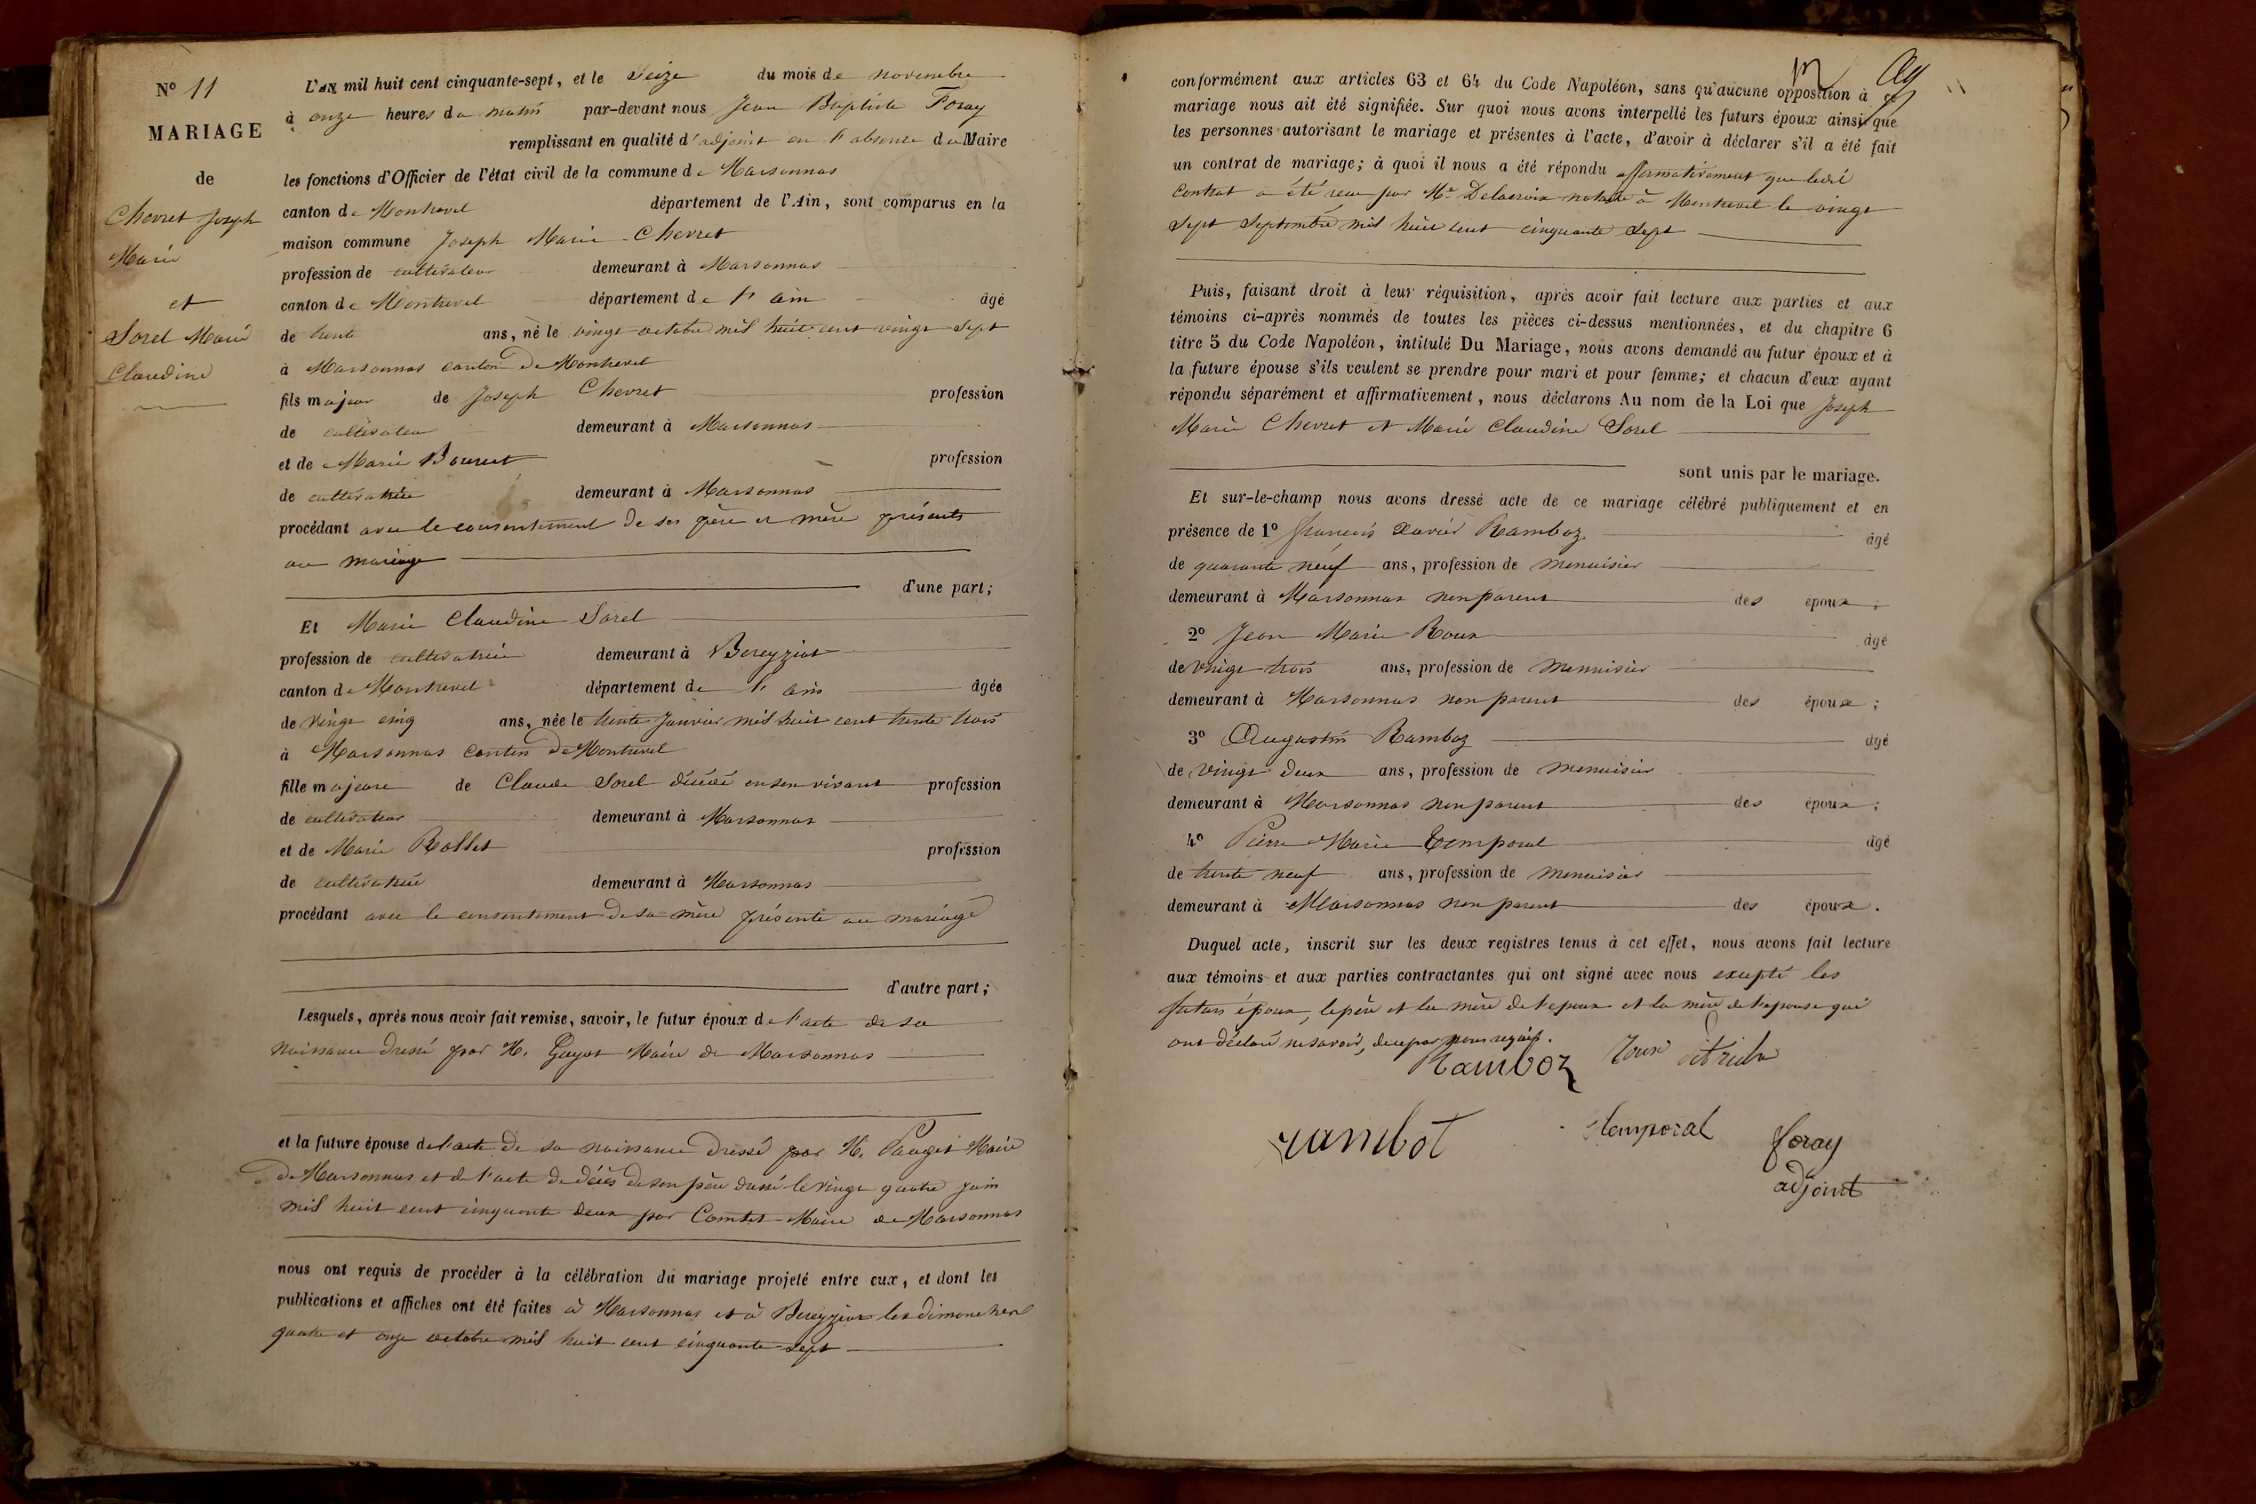 N° 11
MARIAGE
de
Chevret Joseph
Marie
et
Sorel Marie
Claudine
L'AN mil huit cent cinquante-sept, et le Seize du mois de novembre
à onze heures du matin par-devant nous Jean Baptiste Foray
remplissant en qualité d'adjoint en l'absence du Maire
les fonctions d'Officier de l'état civil de la commune de Marsonnas
canton de Montrevel département de l'Ain, sont comparus en la
maison commune Joseph Marie Chevret
profession de cultivateur demeurant à Marsonnas
canton de Montrevel département de l'ain âgé
de trente ans, né le vingt octobre mil huit cent vingt sept
à Marsonnas canton de Montrevel
fils majeur de Joseph Chevret profession
de cultivateur demeurant à Marsonnas
et de Marie Bourcet profession
de cultivatrice demeurant à Marsonnas
procédant avec le consentement de ses père et mère présents
au mariage
d'une part;
Et Marie Claudine Sorel
profession de cultivatrice demeurant à Bereyziat
canton de Montrevel département de l'ain âgée
de vingt cinq ans, née le trente Janvier mil huit cent trente trois
à Marsonnas canton de Montrevel
fille majeure de Claude Sorel décédé en son vivant profession
de cultivateur demeurant à Marsonnas
et de Marie Rollet profession
de cultivatrice demeurant à Marsonnas
procédant avec le consentement de sa mère présente au mariage
d'autre part;
Lesquels, après nous avoir fait remise, savoir, le futur époux de l'acte de sa
naissance dressé par M. Guyot Maire de Marsonnas
et la future épouse de l'acte de sa naissance dressé par M. Pauget Maire
de Marsonnas et de l'acte de décès de son père dressé le vingt quatre juin
mil huit cent cinquante deux par Comtet Maire de Marsonnas
nous ont requis de procéder à la célébration du mariage projeté entre eux, et dont les
publications et affiches ont été faites à Marsonnas et à Bereyziat les dimanches
quatre et onze octobre mil huit cent cinquante sept
conformément aux articles 63 et 64 du Code Napoléon, sans qu'aucune opposition à ce
mariage nous ait été signifiée. Sur quoi nous avons interpellé les futurs époux ainsi que
les personnes autorisant le mariage et présentes à l'acte, d'avoir à déclarer s'il a été fait
un contrat de mariage; à quoi il nous a été répondu affirmativement que ledit
contrat a été reçu par Me Delacroix notaire à Montrevel le vingt
sept Septembre mil huit cent cinquante Sept
Puis, faisant droit à leur réquisition, après avoir fait lecture aux parties et aux
témoins ci-après nommés de toutes les pièces ci-dessus mentionnées, et du chapitre 6
titre 5 du Code Napoléon, intitulé Du Mariage, nous avons demandé au futur époux et à
la future épouse s'ils veulent se prendre pour mari et pour femme; et chacun d'eux ayant
répondu séparément et affirmativement, nous déclarons Au nom de la Loi que Joseph
Marie Chevret et Marie Claudine Sorel
sont unis par le mariage.
Et sur-le-champ nous avons dressé acte de ce mariage célébré publiquement et en
présence de 1° françois Xavier Ramboz âgé
de quarante neuf ans, profession de menuisier
demeurant à Marsonnas non parent des époux;
2° Jean Marie Roux âgé
de vingt trois ans, profession de menuisier
demeurant à Marsonnas non parent des époux;
3° Augustin Ramboz âgé
de vingt deux ans, profession de menuisier
demeurant à Marsonnas non parent des époux;
4° Pierre Marie Temporal âgé
de trente neuf ans, profession de menuisier
demeurant à Marsonnas non parent des époux.
Duquel acte, inscrit sur les deux registres tenus à cet effet, nous avons fait lecture
aux témoins et aux parties contractantes qui ont signé avec nous excepté les
futurs époux, le père et la mère de l'époux et la mère de l'épouse qui
ont déclaré ne savoir, de ce par nous requis.
Ramboz Roux
rambot temporal foray
adjoint